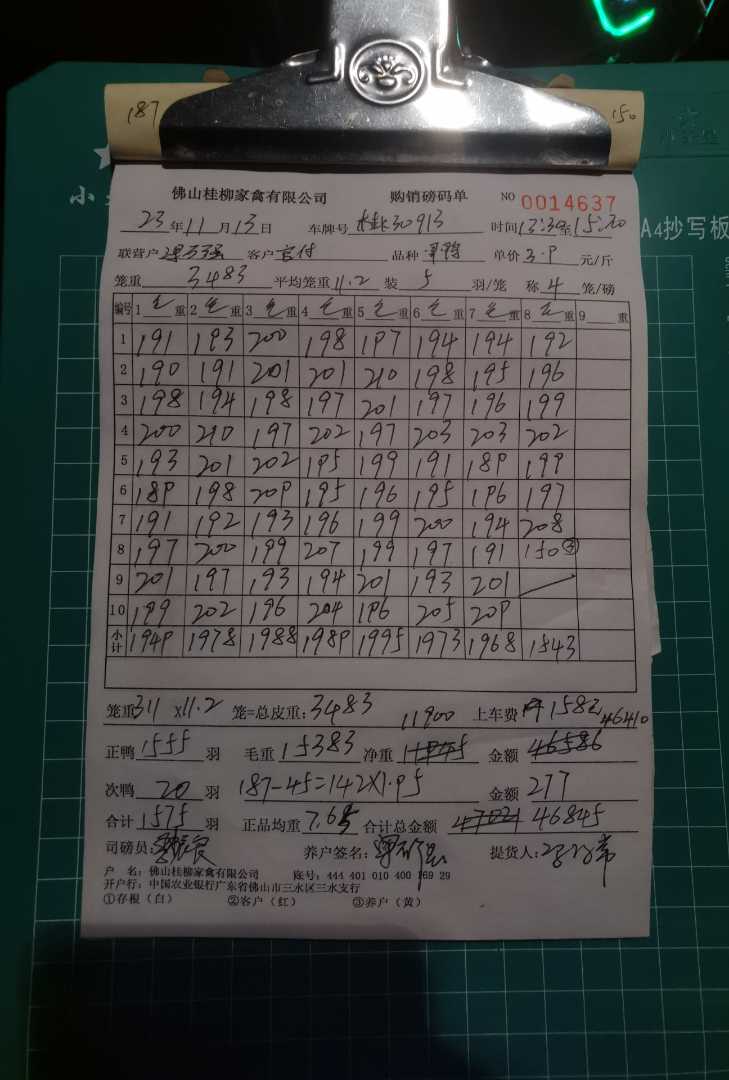 187 150
佛山桂柳家禽有限公司 购销磅码单 NO 0014637
23年11月13日 车牌号 桂K30913 时间13:30至15:20
联营户 客户 官付 品种 单价3.9元/斤
笼重 3483 平均笼重11.2 装 5 羽/笼 称 4 笼/磅
编号 1 毛重 2 毛重 3 毛重 4 毛重 5 毛重 6 毛重 7 毛重 8 毛重 9 重
1 191 193 200 198 197 194 194 192
2 190 191 201 201 210 198 195 196
3 198 194 198 197 201 197 196 199
4 200 210 197 202 197 203 203 202
5 193 201 202 195 199 191 189 199
6 189 198 209 195 196 195 196 197
7 191 192 193 196 199 200 194 208
8 197 200 199 207 199 197 191 150③
9 201 197 193 194 201 193 201
10 199 202 196 204 196 205 209
小计 1949 1978 1988 1989 1995 1973 1968 1543
笼重311 X11.2 笼=总皮重:3483 11900 上车费 1582 46410
正鸭1555羽 毛重 15383 净重 金额 46586
次鸭 20 羽 187-45=142X1.95 金额 277
合计 1575 羽 正品均重 7.65 合计总金额 46845
司磅员: 养户签名: 提货人:
户 名:佛山桂柳家禽有限公司 账号:444 401 010 400 169 29
开户行:中国农业银行广东省佛山市三水区三水支行
①存根(白) ②客户(红) ③养户(黄)
A4抄写板
小